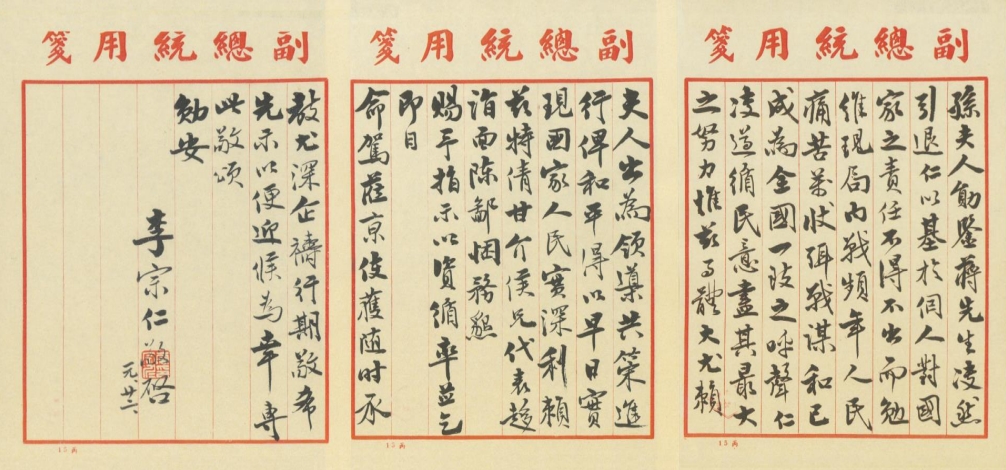 副總統用箋
孫夫人勛鑒蔣先生凌然
引退仁以基於個人對國
家之責任不得不出而勉
維現局內戰頻年人民
痛苦萬狀弭戰謀和已
成為全國一致之呼聲仁
遵循民意盡其最大
之努力惟茲事體大尤賴
副總統用箋
夫人出為領導共策進
行俾和平得以早日實
現國家人民實深利賴
茲特倩甘介侯兄代表趨
詣面陳鄙悃務懇
賜予指示以資循率並乞
即日
命駕蒞京俾獲隨時承
副總統用箋
教尤深企禱行期敬希
先示以便迎候為幸專
此敬頌
勛安
李宗仁敬啓
元、廿